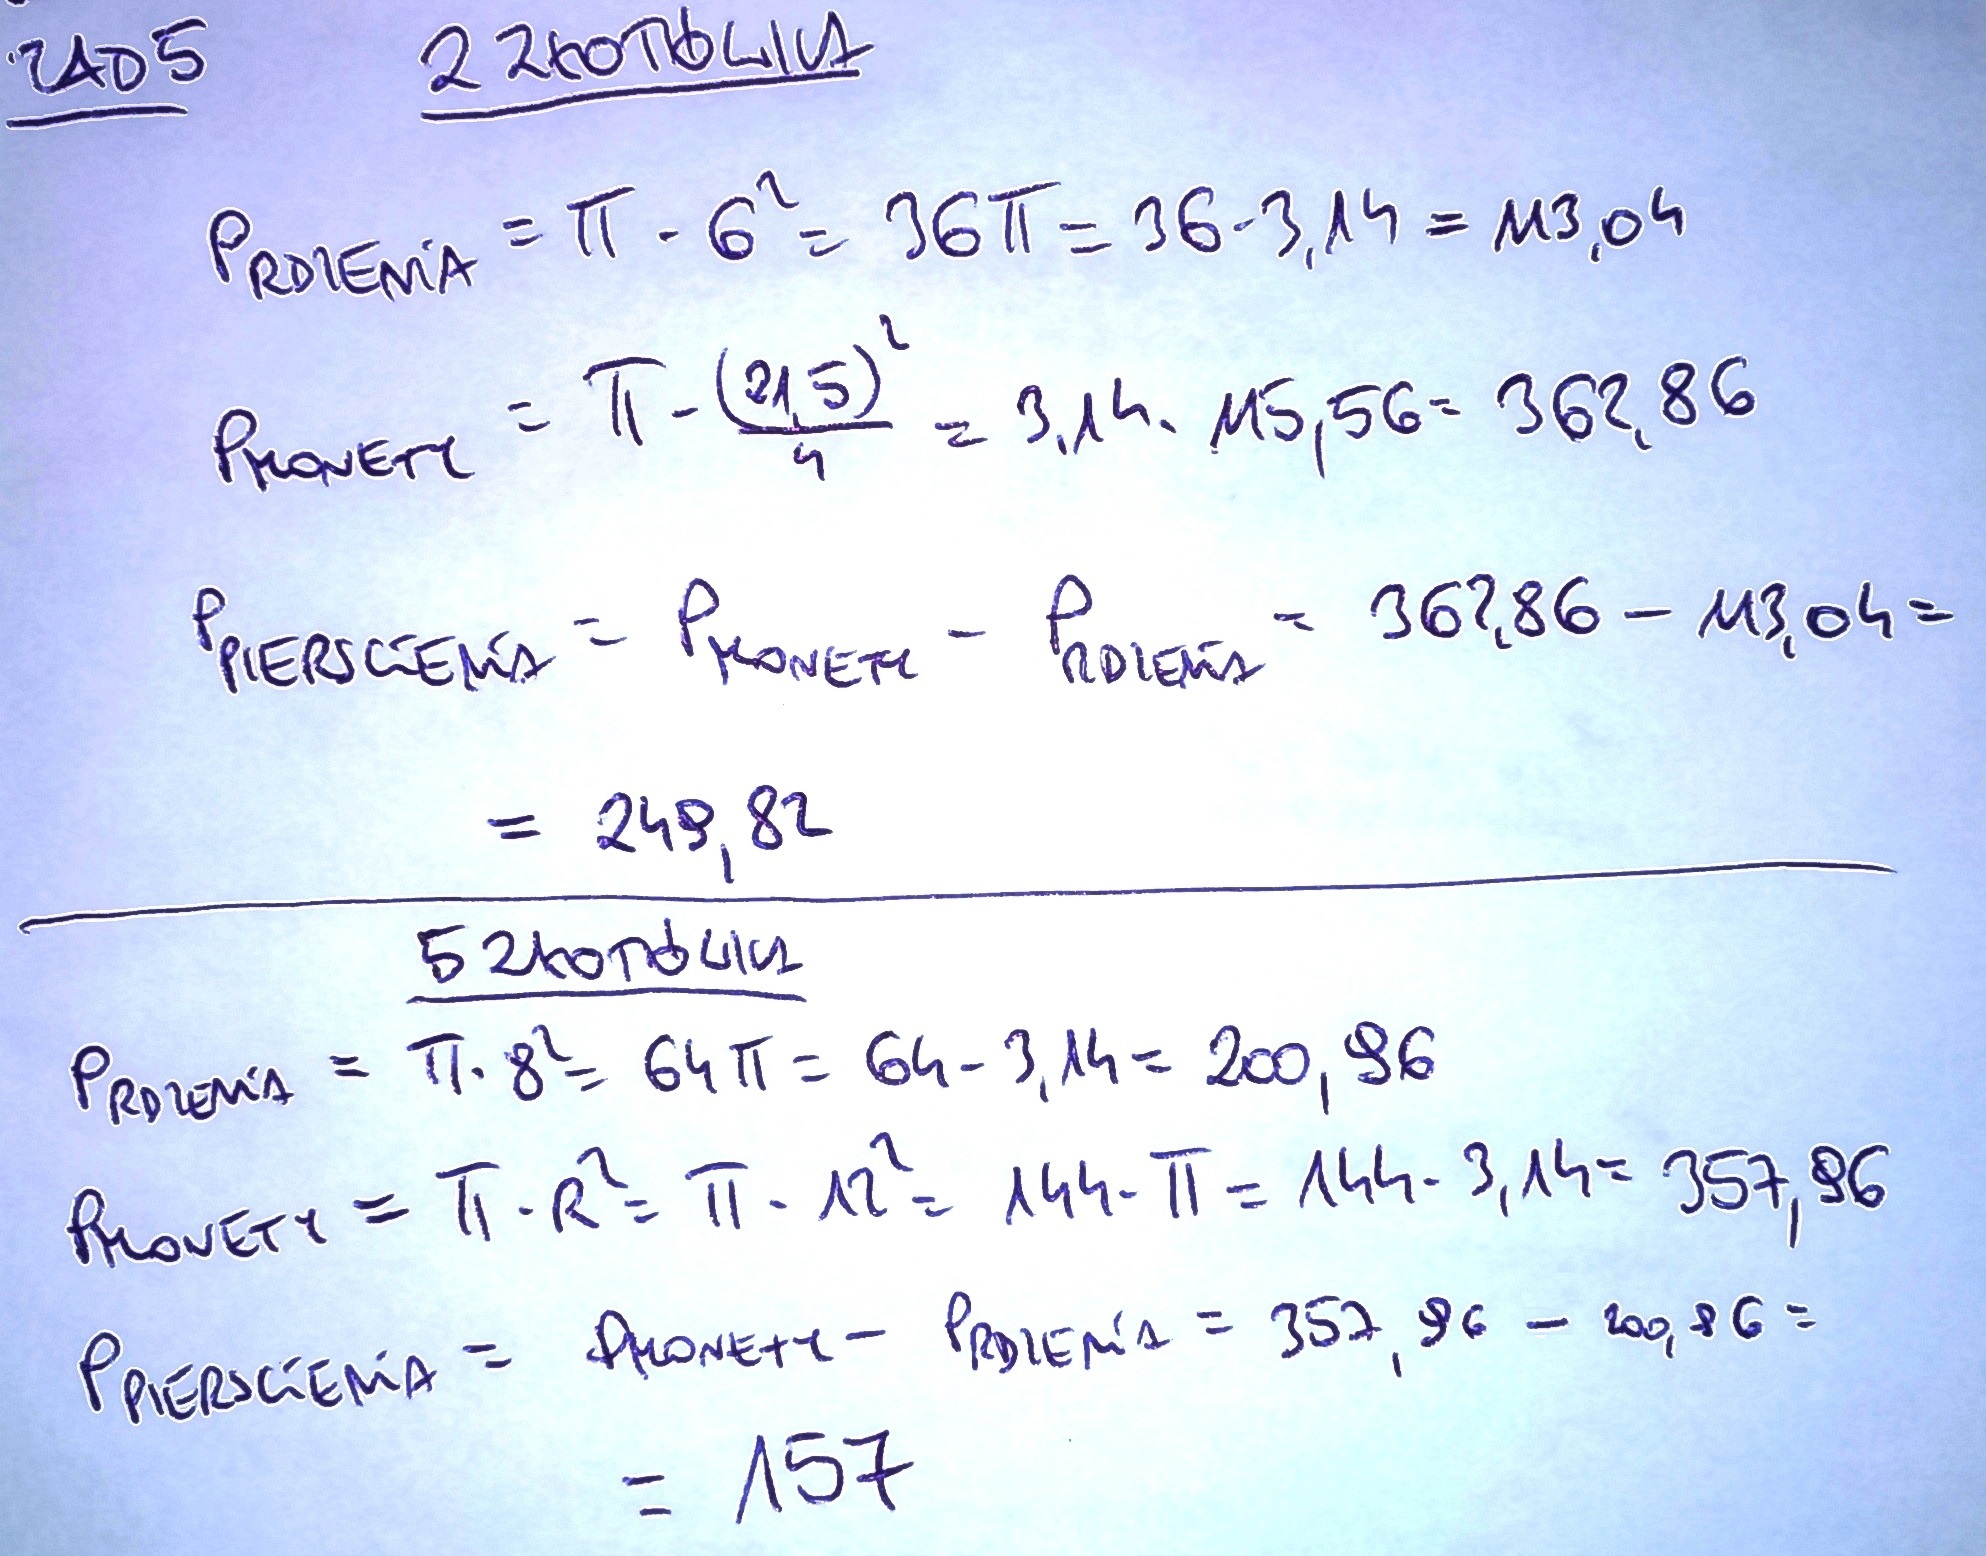 ZAD5 2 ZŁOTÓWKA
P RDZENIA = π · 6² = 36π = 36 · 3,14 = 113,04
P MONETY = π · (21,5)²/4 = 3,14 · 115,56 = 362,86
P PIERŚCIENIA = P MONETY − P RDZENIA = 362,86 − 113,04 =
= 249,82
5 ZŁOTÓWKA
P RDZENIA = π · 8² = 64π = 64 · 3,14 = 200,96
P MONETY = π · R² = π · 12² = 144 · π = 144 · 3,14 = 357,96
P PIERŚCIENIA = P MONETY − P RDZENIA = 357,96 − 200,96 =
= 157